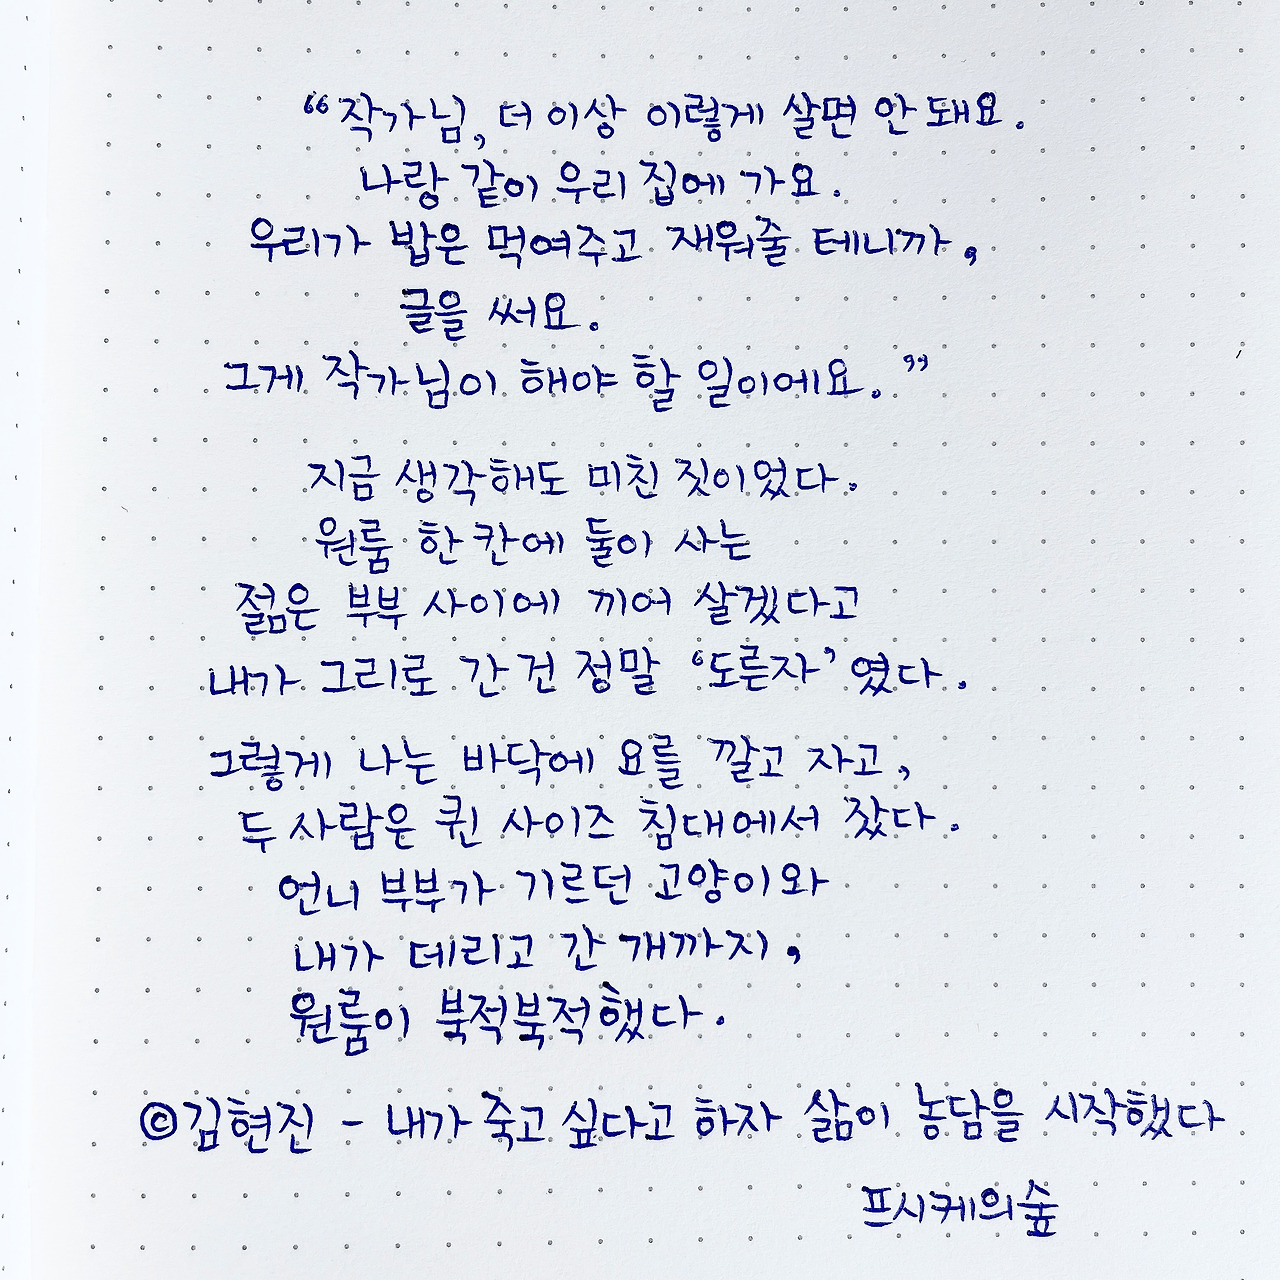 “작가님, 더 이상 이렇게 살면 안 돼요.
나랑 같이 우리 집에 가요.
우리가 밥은 먹여주고 재워줄 테니까,
글을 써요.
그게 작가님이 해야 할 일이에요.”
지금 생각해도 미친 짓이었다.
원룸 한 칸에 둘이 사는
젊은 부부 사이에 끼어 살겠다고
내가 그리로 간 건 정말 ‘도른자’였다.
그렇게 나는 바닥에 요를 깔고 자고,
두 사람은 퀸 사이즈 침대에서 잤다.
언니 부부가 기르던 고양이와
내가 데리고 간 개까지,
원룸이 북적북적했다.
©김현진 - 내가 죽고 싶다고 하자 삶이 농담을 시작했다
프시케의숲